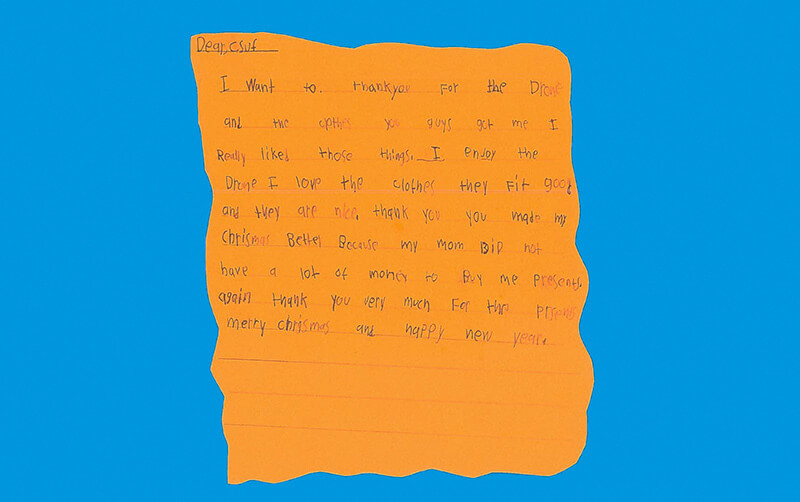 Dear, csuf
I Want to. thankyou For the Drone
and the clothes you guys got me I
Really liked those things. I enjoy the
Drone I love the clothes they Fit good
and they are nice. thank you you made my
Chrismas Better Because my mom DiD not
have a lot of money to Buy me presents.
again thank you very much For the prsents
merry chrismas and happy new year.